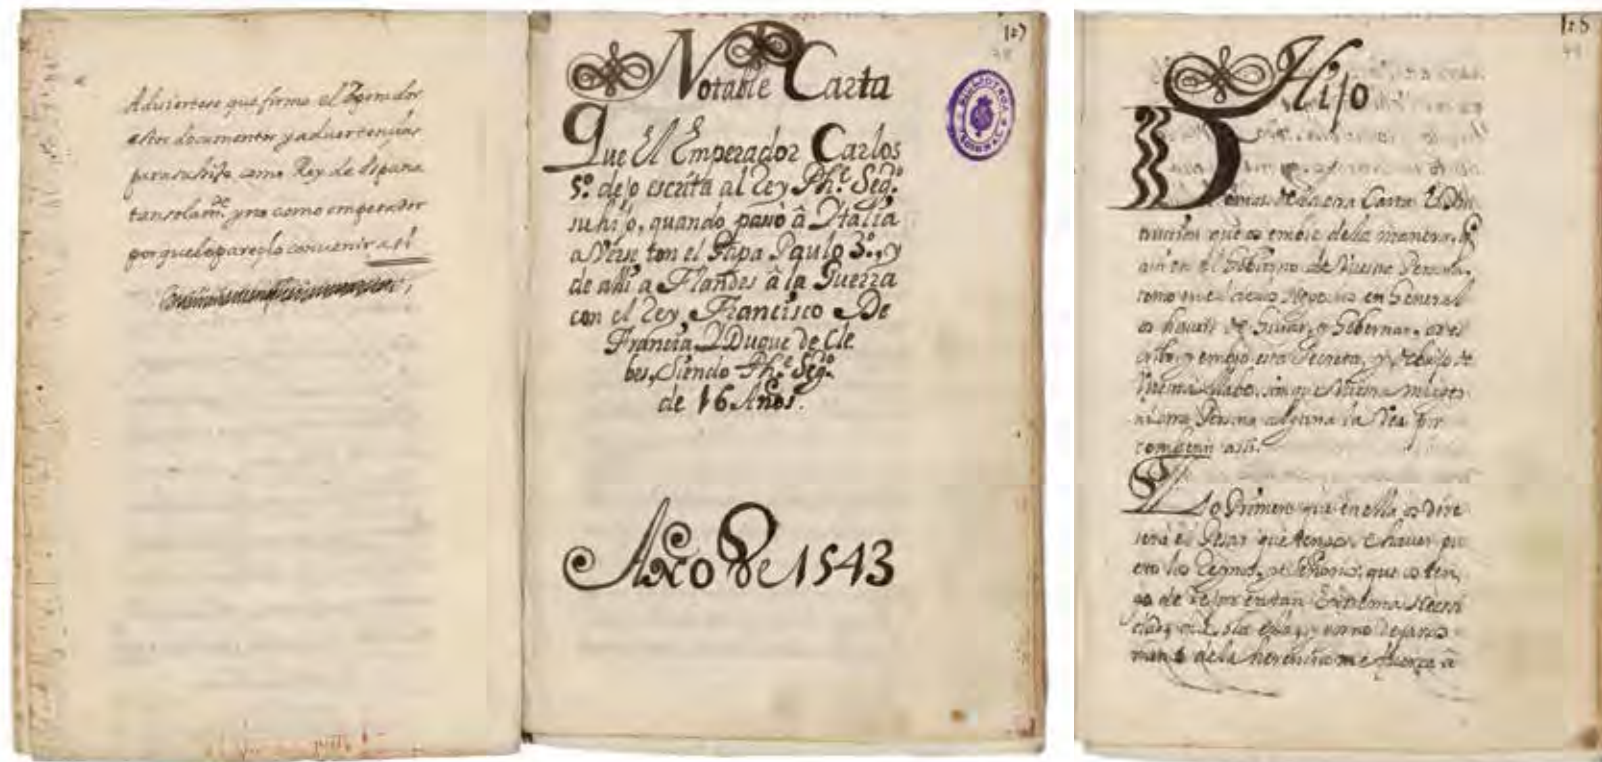 Adviertese que firmo el Emperador
estos documentos y advertencias
para su hijo como Rey de España
tan solam.te y no como emperador
porque le pareçio convenir asi
127
Notable Carta
Que El Emperador Carlos
5º. dejo escrita al Rey Phe. Segº.
su hijo, quando passò â Italia
a Verse con el Papa Paulo 3º., y
de alli a Flandes â la Guerra
con el Rey Francisco De
Francia Y Duque de Cle
bes, Siendo Phe. Segº.
de 16 Años.
BIBLIOTECA NACIONAL
Año De 1543
128
49
Hijo
Demas de la otra Carta E Yns
truccion que os embie de la manera, q
assi en el Gobierno de Vuestra Persona,
como en el de los Negocios en General
os haveis de Guiar, y Gobernar, os es
cribo, y embio esta Secreta, y debajo de
Vuestra llave, sin que Vuestra muger
ni otra Persona alguna la Vea por
combenir assi.
Lo Primero que en ella os dire
será el Pesar que tengo de haver pu
esto los Reynos, y Señorios, que os ten
go de dejar en tan Extrema Neces
de la herencia me fuerza â